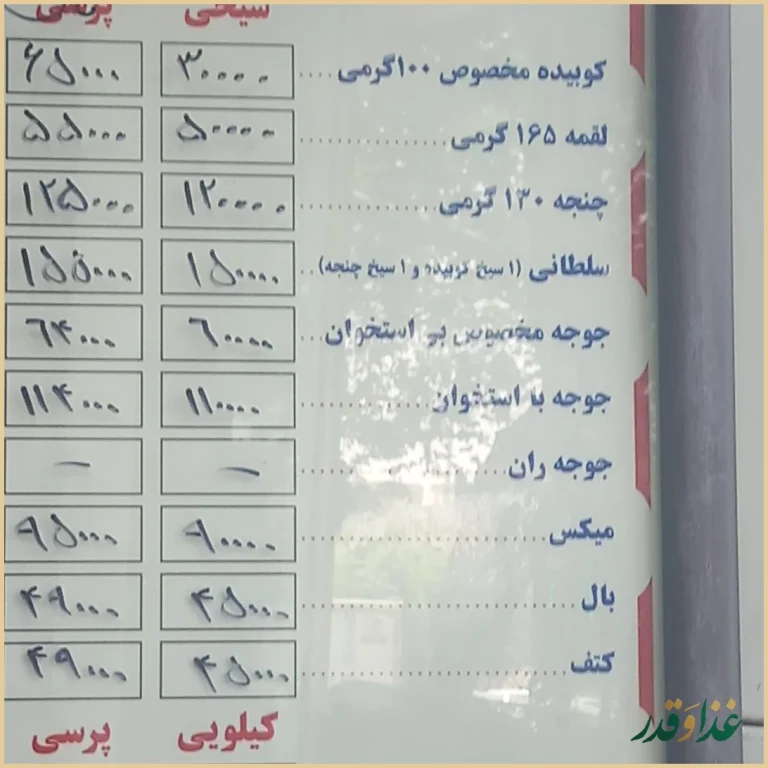 سیخی پرسی
کوبیده مخصوص ۱۰۰گرمی .... ۳۰۰۰۰ ۶۵۰۰۰
لقمه ۱۶۵ گرمی .... ۵۰۰۰۰ ۵۵۰۰۰
چنجه ۱۳۰ گرمی .... ۱۲۰۰۰۰ ۱۲۵۰۰۰
سلطانی (۱ سیخ کوبیده و ۱ سیخ چنجه) .. ۱۵۰۰۰۰ ۱۵۵۰۰۰
جوجه مخصوص بی استخوان ... ۶۰۰۰۰ ۶۴۰۰۰
جوجه با استخوان .... ۱۱۰۰۰۰ ۱۱۴۰۰۰
جوجه ران .... — —
میکس .... ۹۰۰۰۰ ۹۵۰۰۰
بال .... ۴۵۰۰۰ ۴۹۰۰۰
کتف .... ۴۵۰۰۰ ۴۹۰۰۰
کیلویی پرسی
غذا و قدر